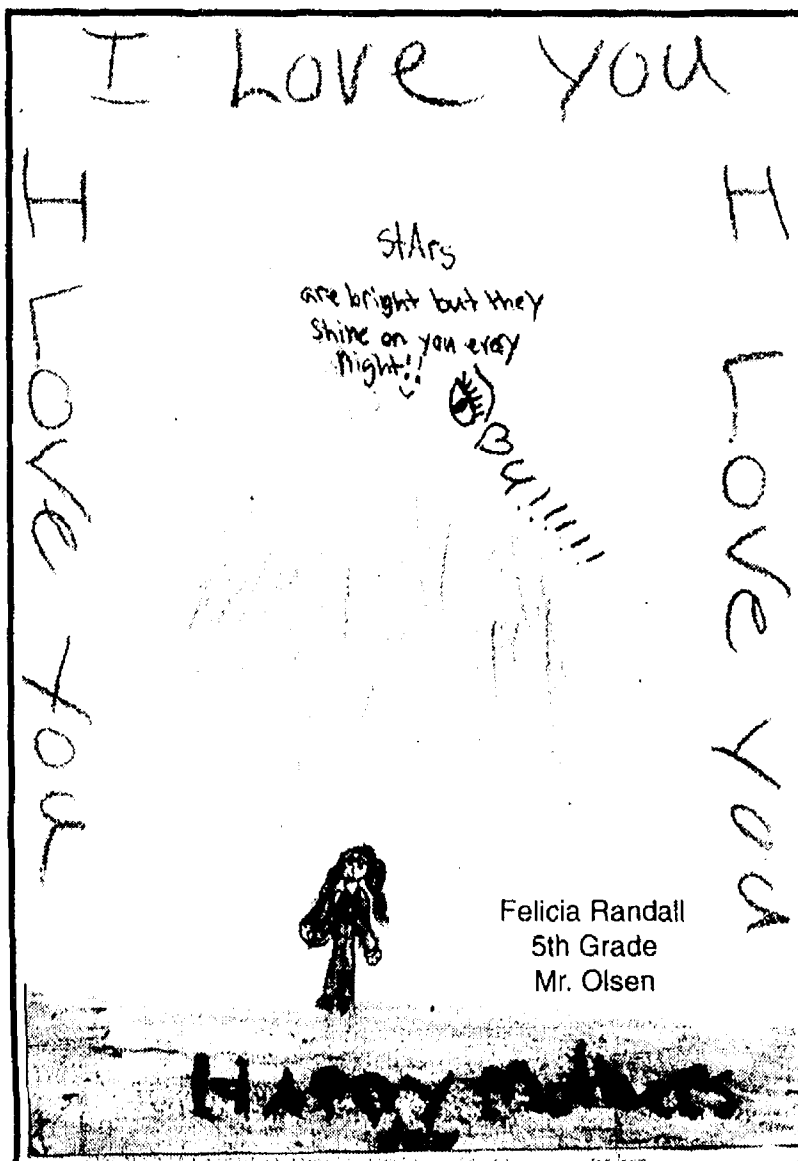 I Love You
I Love You
I Love You
stArs
are bright but they
shine on you every
Night!!
U!!!!!!
Felicia Randall
5th Grade
Mr. Olsen
Happy Mothers